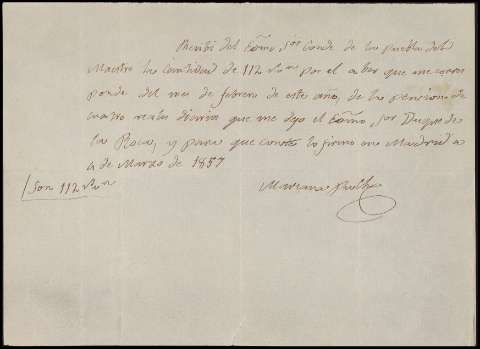 Recibi del Exmo. Sor. Conde de la puebla del
Maestre la Cantidad de 112 rs vn por el aber que me corres
ponde del mes de febrero de este año, de la pension de
cuatro reales diarios que me dejo el Exmo, Sor Duque de
la Roca, y para que conste lo firmo en Madrid a
4 de Marzo de 1857
Son 112 rs vn
Mariana